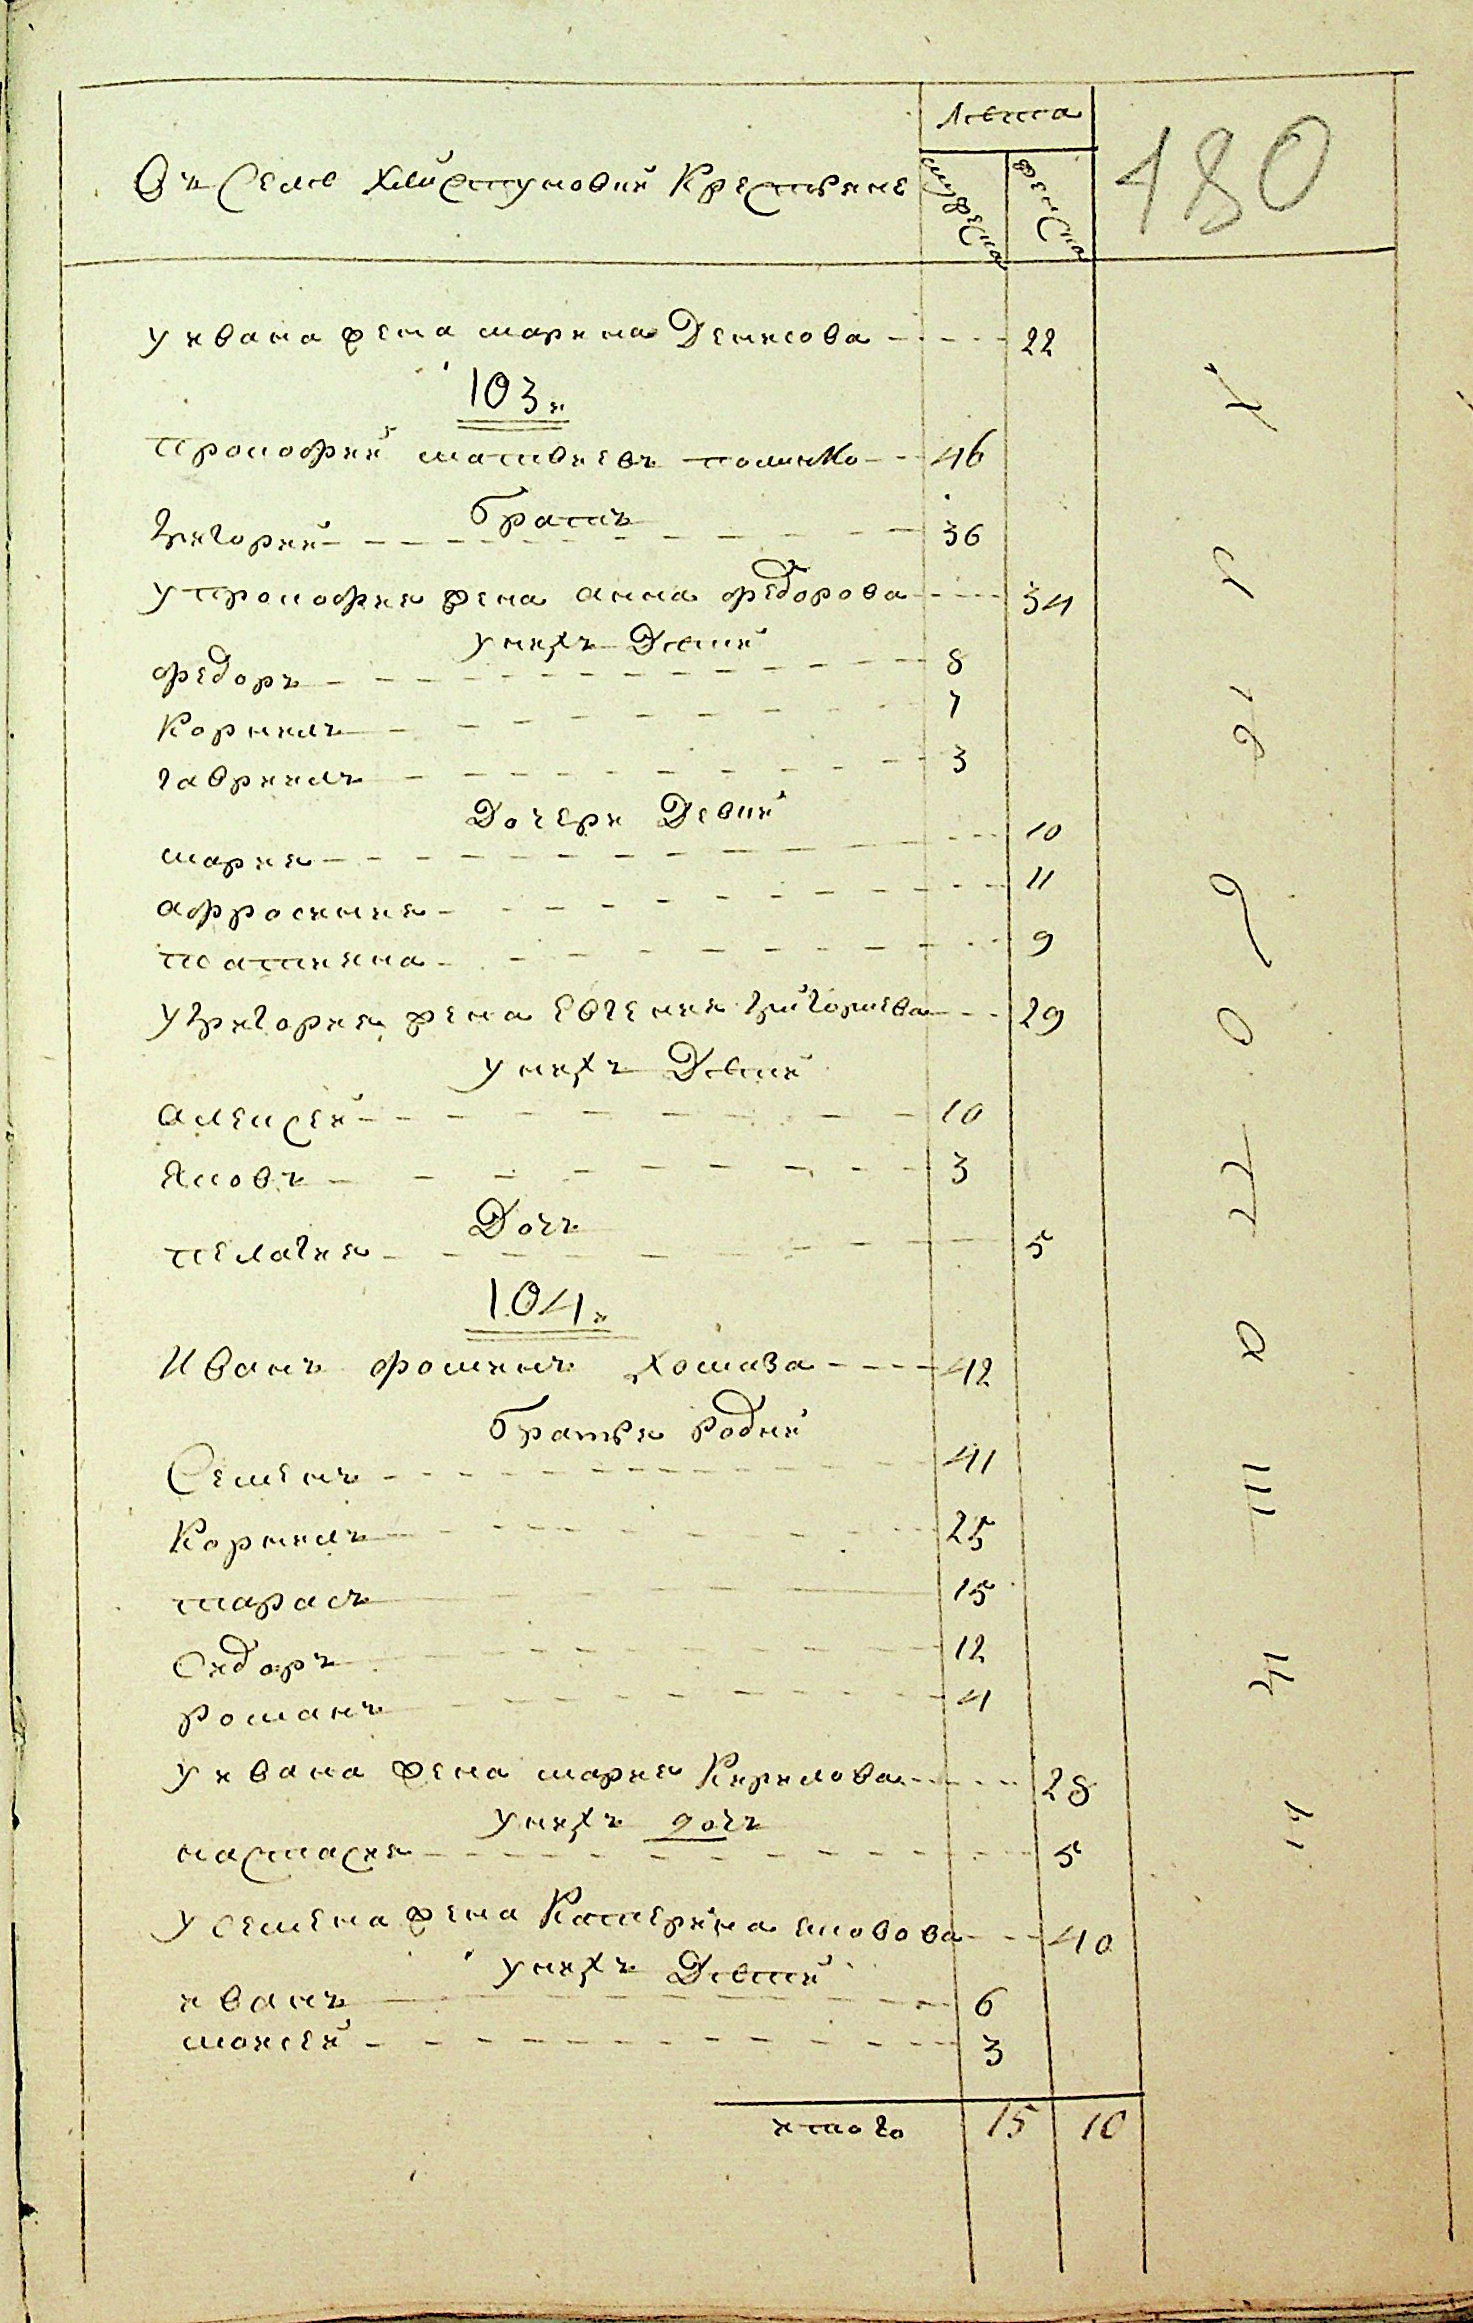 Лѣта
180
Въ Селѣ Хлистуновки Крестьяне
мужеска
женска
у ивана жена марина Денисова 22
103.
прокофий матвиевъ 46
братъ
Григорий 36
у прокофия жена анна федорова 34
у нихъ Дѣти
федоръ 8
Корнилъ 7
гавриилъ 3
Дочери Девки
мария 10
афросиния 11
татияна 9
у Григория жена Евгения Григориева 29
у нихъ Дѣти
алексей 10
Яковъ 3
Дочъ
пелагия 5
104.
Иванъ фоминъ 42
братья родни
Семенъ 41
Корнилъ 25
тарасъ 15
Сидоръ 12
романъ 4
у ивана жена мария Кирилова 28
у нихъ дочъ
настасия 5
у семена жена Катерина яковова 40
у нихъ Дѣти
иванъ 6
моисей 3
итого 15 10